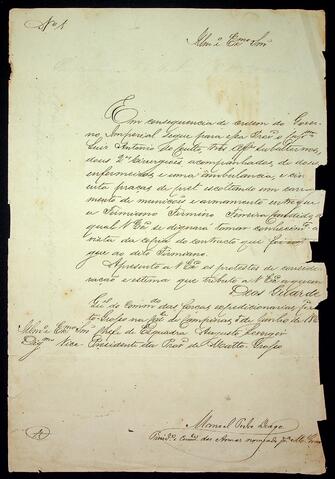 Nº 1
Illmº e Exmº Snr
Em consequencia de ordem do Gover-
no Imperial segue para essa Provª o
Luiz Antonio de tres Offes subalternos,
dous 2os Cirurgiões acompanhados, de dous
enfermeiros e uma ambulancia, e cin-
coenta praças de pret escoltando um carre-
mento de munições e armamento entregue
a Firmiano Firmino Ferreira
qual V Exª se dignará tomar conhecimtº
a vista da copia do contracto que
que ao dito Firmiano.
Apresento a V Exª os protestos de conside-
ração e estima que tributo a V Exª a quem
Deos Guarde
Qel do Commdº das forças expedicionarias
to Grosso na de Campinas de Junho de 186
Illmº e Exmº Snr Chefe de Esquadra Augusto Leverger
Digmº Vice Presidente da Provª de Matto Grosso
Manoel Pedro Drago
Presidte Commde das Armas nomeado pª Mº Grosso